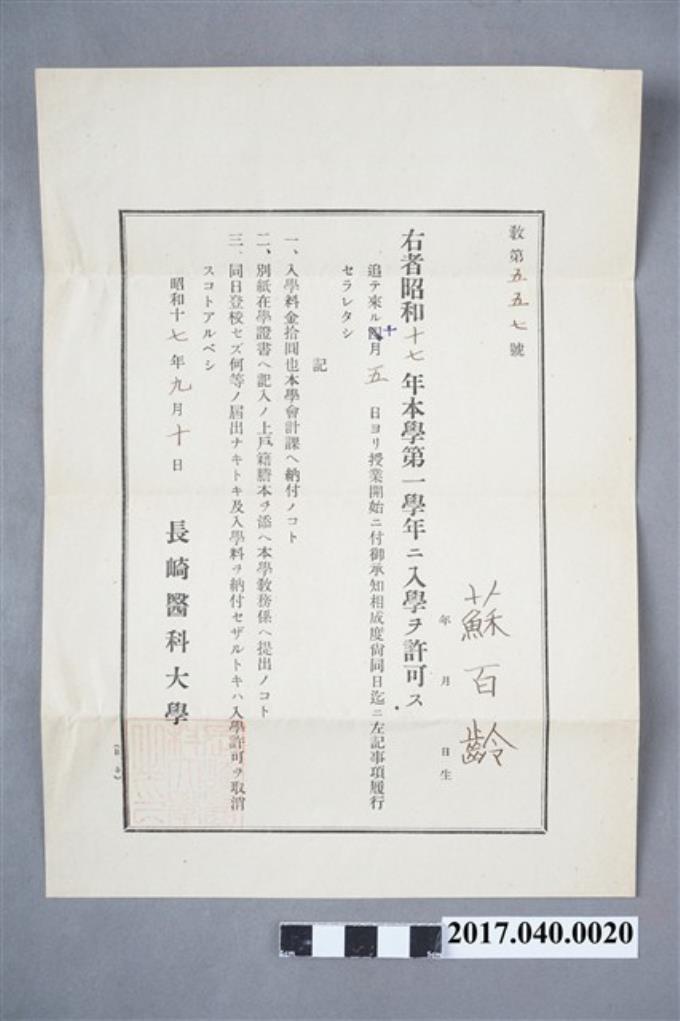 教第五五七號
蘇百齡
年 月 日生
右者昭和十七年本學第一學年ニ入學ヲ許可ス
追テ來ル十月五日ヨリ授業開始ニ付御承知相成度尙同日迄ニ左記事項履行
セラレタシ
記
一、入學料金拾圓也本學會計課ヘ納付ノコト
二、別紙在學證書ヘ記入ノ上戶籍謄本ヲ添ヘ本學敎務係ヘ提出ノコト
三、同日登校セズ何等ノ屆出ナキトキ及入學料ヲ納付セザルトキハ入學許可ヲ取消
スコトアルベシ
昭和十七年九月十日
長崎醫科大學
2017.040.0020